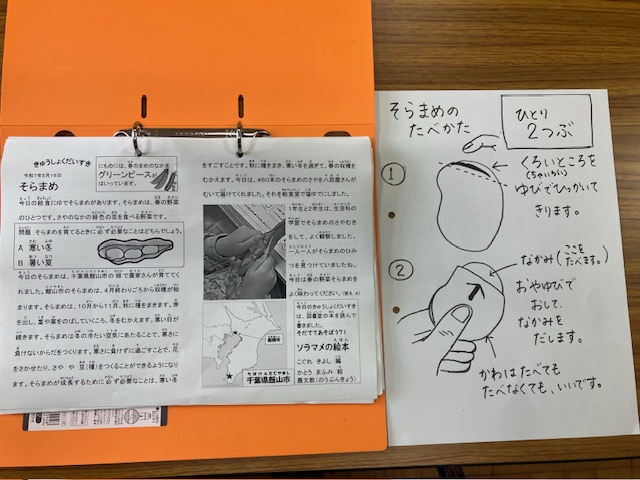 きゅうしょくだいすき
令和7年5月16日
そらまめ
にものには、春のまめのなかま
グリーンピースが
はいっています。
今日の給食にゆでそらまめがあります。そらまめは、春の野菜
のひとつです。さやのなかの緑色の豆を食べる野菜です。
問題 そらまめを育てるときに必ず必要なことはどちらでしょう。
A 寒い冬
B 暑い夏
今日のそらまめは、千葉県館山市の畑で農家さんが育ててく
れました。館山市のそらまめは、4月終わりごろから収穫が始
まります。そらまめは、10月から11月、秋に種をまきます。芽
を出し、茎や葉をのばしていくころ、冬をむかえます。寒い日が
続きます。そらまめは冬の冷たい空気にあたることで、寒さに
負けないからだをつくります。寒さに負けずに過ごすことで、花
をさかせたり、さや や 豆(種)をつくることができるようになり
ます。そらまめが成長するために必ず必要なことは、寒い冬
をすごすことです。秋に種をまき、寒い冬を過ぎて、春の収穫を
むかえます。今日は、460本のそらまめのさやを八百屋さんが
むいて届けてくれました。それを給食室で塩ゆでにしました。
1年生と2年生は、生活科の
学習でそらまめのさやむき
をして、よく観察しました。
一人一人がそらまめのひみ
つを見つけていましたね。
今日は春の野菜そらまめを
よく味わってください。(答え A)
今日のきゅうしょくだいすき
は、図書室の本を読んで
書きました。
そだててあそぼう71
ソラマメの絵本
こぐれ きよし 編
かとう まふみ 絵
農文教(のうぶんきょう)
千葉県館山市
そらまめの
たべかた
ひとり
2つぶ
①
くろいところを
(ちゃいろい)
ゆびでひっかいて
きります。
②
なかみ(ここを
たべます。)
おやゆびで
おして、
なかみを
だします。
かわはたべても
たべなくても、いいです。